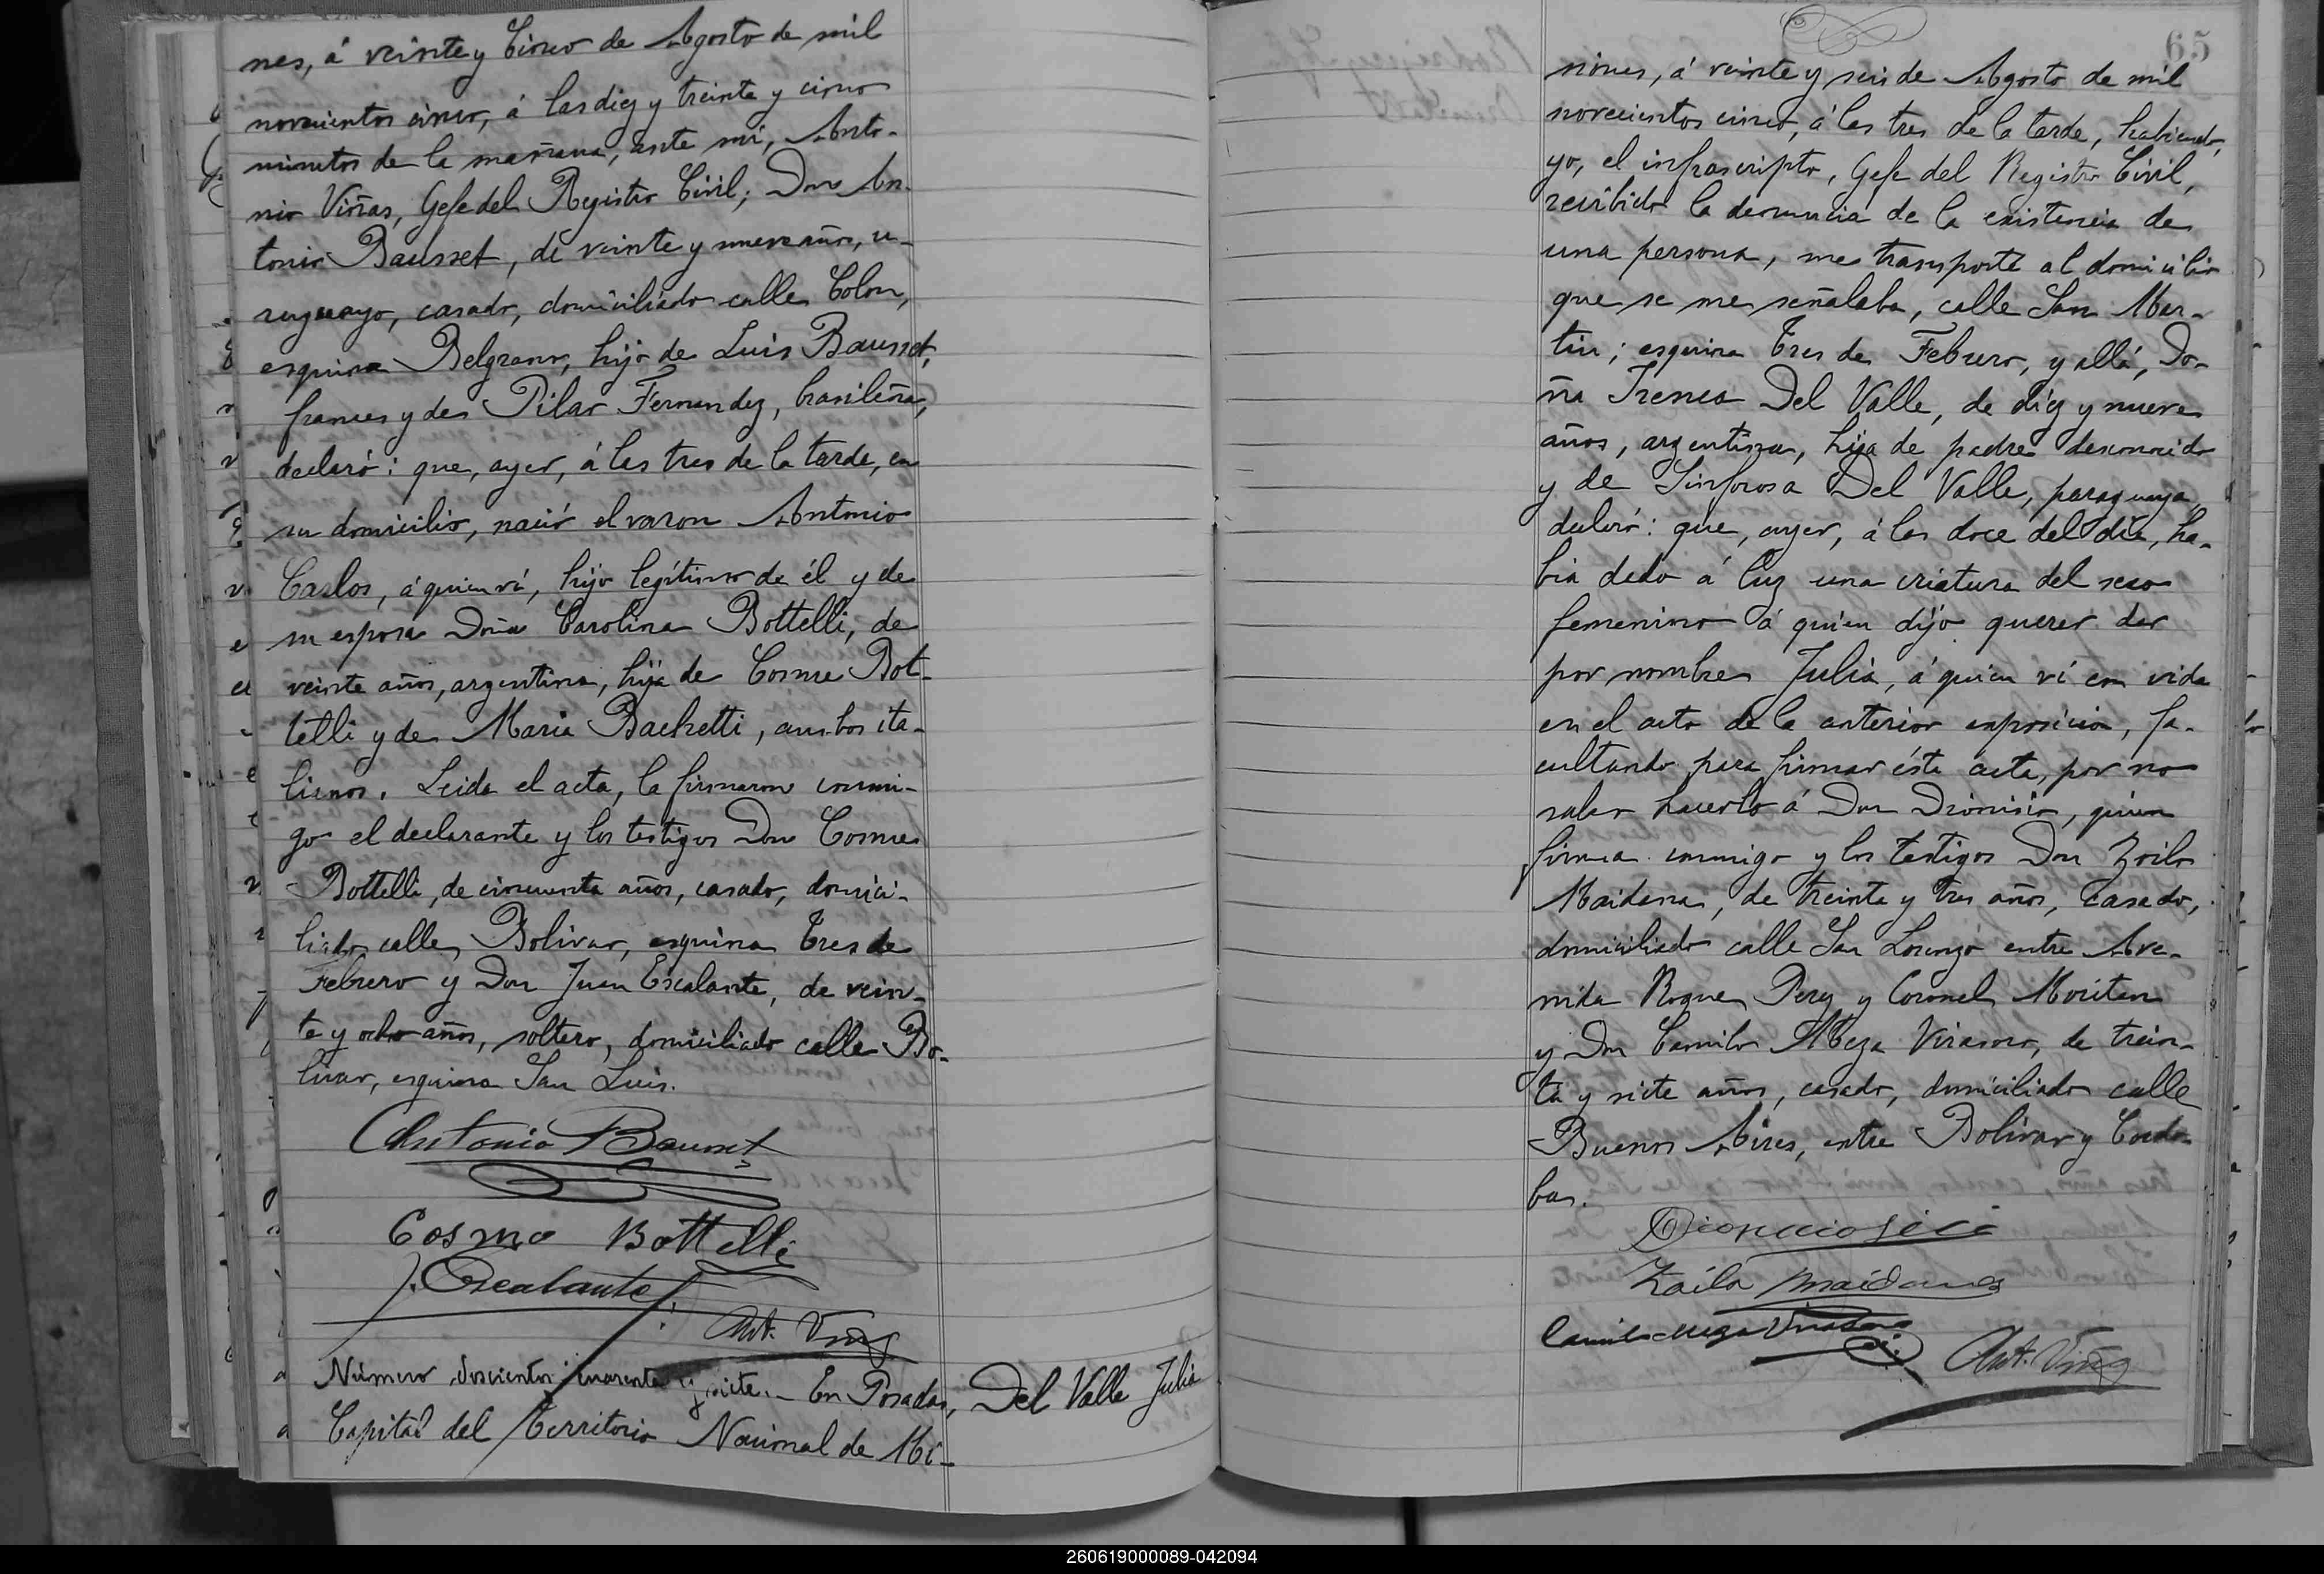 nes, á veinte y cinco de Agosto de mil
novecientos cinco, á las diez y treinta y cinco
minutos de la mañana, ante mi, Anto-
nio Viñas, Gefe del Registro Civil; Don An-
tonio Bausset, de veinte y nueve años, u-
ruguayo, casado, domiciliado calle Colon,
esquina Belgrano, hijo de Luis Bausset,
frances y de Pilar Fernandez, brasileña,
declaró: que, ayer, á las tres de la tarde, en
su domicilio, nació el varon Antonio
Carlos, á quien ví, hijo legítimo de él y de
su esposa Doña Carolina Bottelli, de
veinte años, argentina, hija de Cosme Bot-
telli y de Maria Bachetti, ambos ita-
lianos. Leida el acta, la firmaron conmi-
go el declarante y los testigos Don Cosme
Bottelli, de cincuenta años, casado, domici-
liado calle Bolivar, esquina Tres de
Febrero y Don Juan Escalante, de vein-
te y ocho años, soltero, domiciliado calle Bo-
livar, esquina San Luis.
Antonio Bausset
Cosmo Bottelli
J. Escalante
Ant. Viñas
Número doscientos cuarenta y siete. - En Posadas,
Del Valle Julia
Capital del Territorio Nacional de Mi-
65
siones, á veinte y seis de Agosto de mil
novecientos cinco, á las tres de la tarde, habiendo,
yo, el infrascripto, Gefe del Registro Civil,
recibido la denuncia de la existencia de
una persona, me transporté al domicilio
que se me señalaba, calle San Mar-
tin; esquina Tres de Febrero, y allá, Do-
ña Irenea Del Valle, de diez y nueve
años, argentina, hija de padre desconocido
y de Sinforosa Del Valle, paraguaya,
declaró: que, ayer, á las doce del dia, ha-
bia dado á luz una criatura del sexo
femenino á quien dijo querer dar
por nombre Julia, á quien ví con vida
en el acto de la anterior exposicion, fa-
cultando para firmar ésta acta, por no
saber hacerlo á Don Dionisio, quien
firma conmigo y los testigos Don Zoilo
Maidana, de treinta y tres años, casado,
domiciliado calle San Lorenzo entre Ave-
nida Roque Perez y Coronel
y Don Camilo Meza Virasoro, de trein-
ta y siete años, casado, domiciliado calle
Buenos Aires, entre Bolivar y Cordo-
ba.
Zoilo Maidana
Camilo Meza Virasoro
Ant. Viñas
260619000089-042094